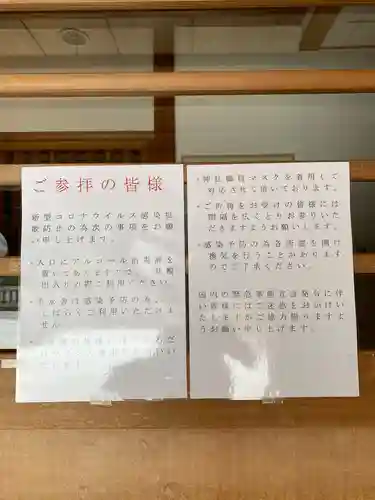 ご参拝の皆様
新型コロナウイルス感染拡
散防止の為次の事項をお願
い申し上げます。
・入口にアルコール消毒液を
置いてありますので、
出入りの際ご利用ください。
・手水舎は感染予防の為、
しばらくご利用いただけま
せん
・神社職員マスクを着用して
対応させて頂いております。
・ご祈祷をお受けの皆様には
間隔を広くとりお参りいた
だきますようお願い
・感染予防の為各所窓を開け
換気を行うことがあります
のでご了承ください。
国内の緊急事態宣言発令に伴
い皆様にはご迷惑をお掛けい
たしますがご協力賜りますよ
うお願い申し上げます。